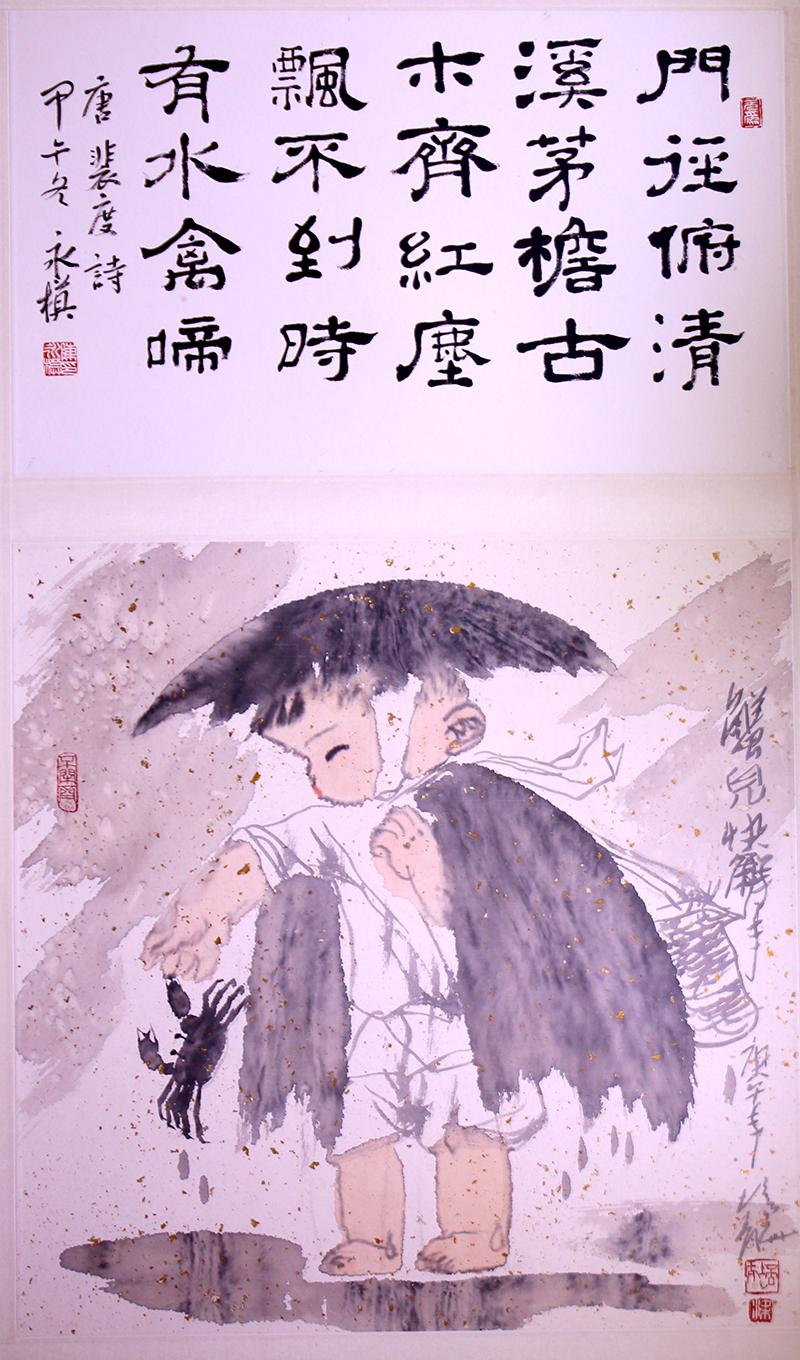 門徑俯清
溪茅檐古
木齊紅塵
飄不到時
有水禽啼
唐裴度詩
甲午冬永槙
蟹兒快解手
庚午年